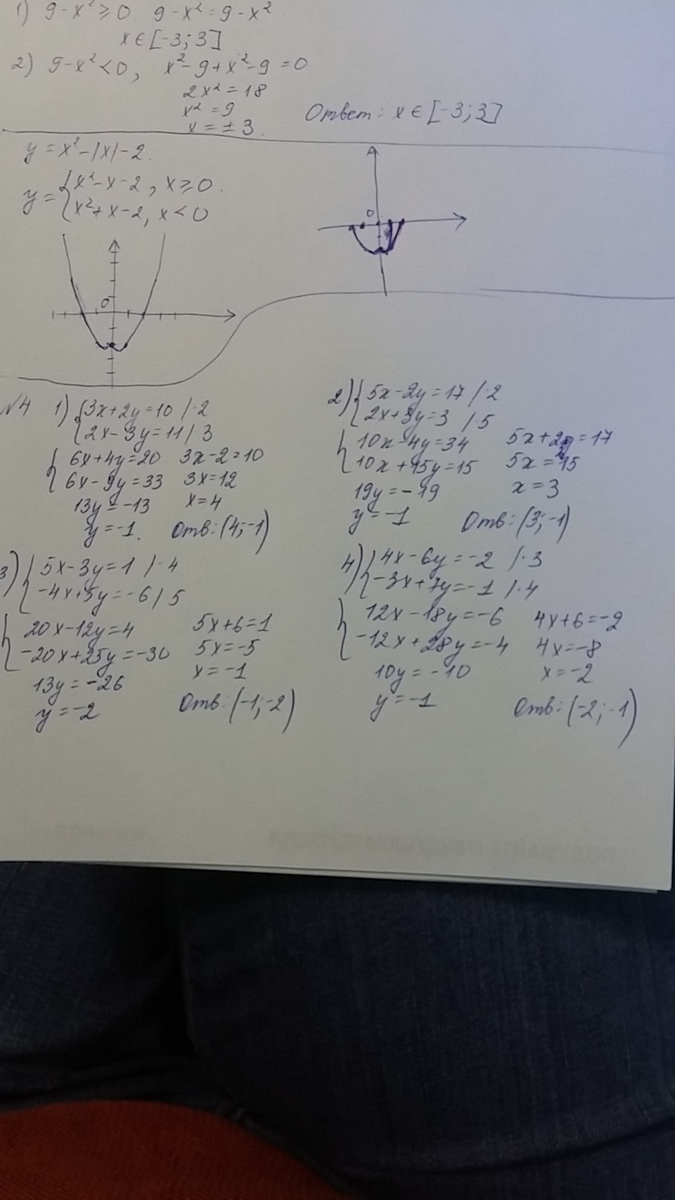 1) 9-x²≥0 9-x²=9-x²
x∈[-3;3]
2) 9-x²<0, x²-9+x²-9=0
2x²=18
x²=9
x=±3.
Ответ: x∈[-3;3]
y=x²-|x|-2.
y={x²-x-2, x≥0.
x²+x-2, x<0
0
0
№4 1) {3x+2y=10 /·2
2x-3y=11/3
{6x+4y=20 3x-2=10
6x-9y=33 3x=12
13y=-13 x=4
y=-1. Отв:(4;-1)
2) {5x-2y=17 /·2
2x+3y=3 /5
{10x-4y=34 5x+2=17
10x+15y=15 5x=15
19y=-19 x=3
y=-1 Отв:(3;-1)
3) {5x-3y=1 /·4
-4x+5y=-6/5
{20x-12y=4 5x+6=1
-20x+25y=-30 5x=-5
13y=-26 x=-1
y=-2 Отв:(-1;-2)
4) {4x-6y=-2 /·3
-3x+7y=-1 /·4
{12x-18y=-6 4x+6=-2
-12x+28y=-4 4x=-8
10y=-10 x=-2
y=-1 Отв:(-2;-1)